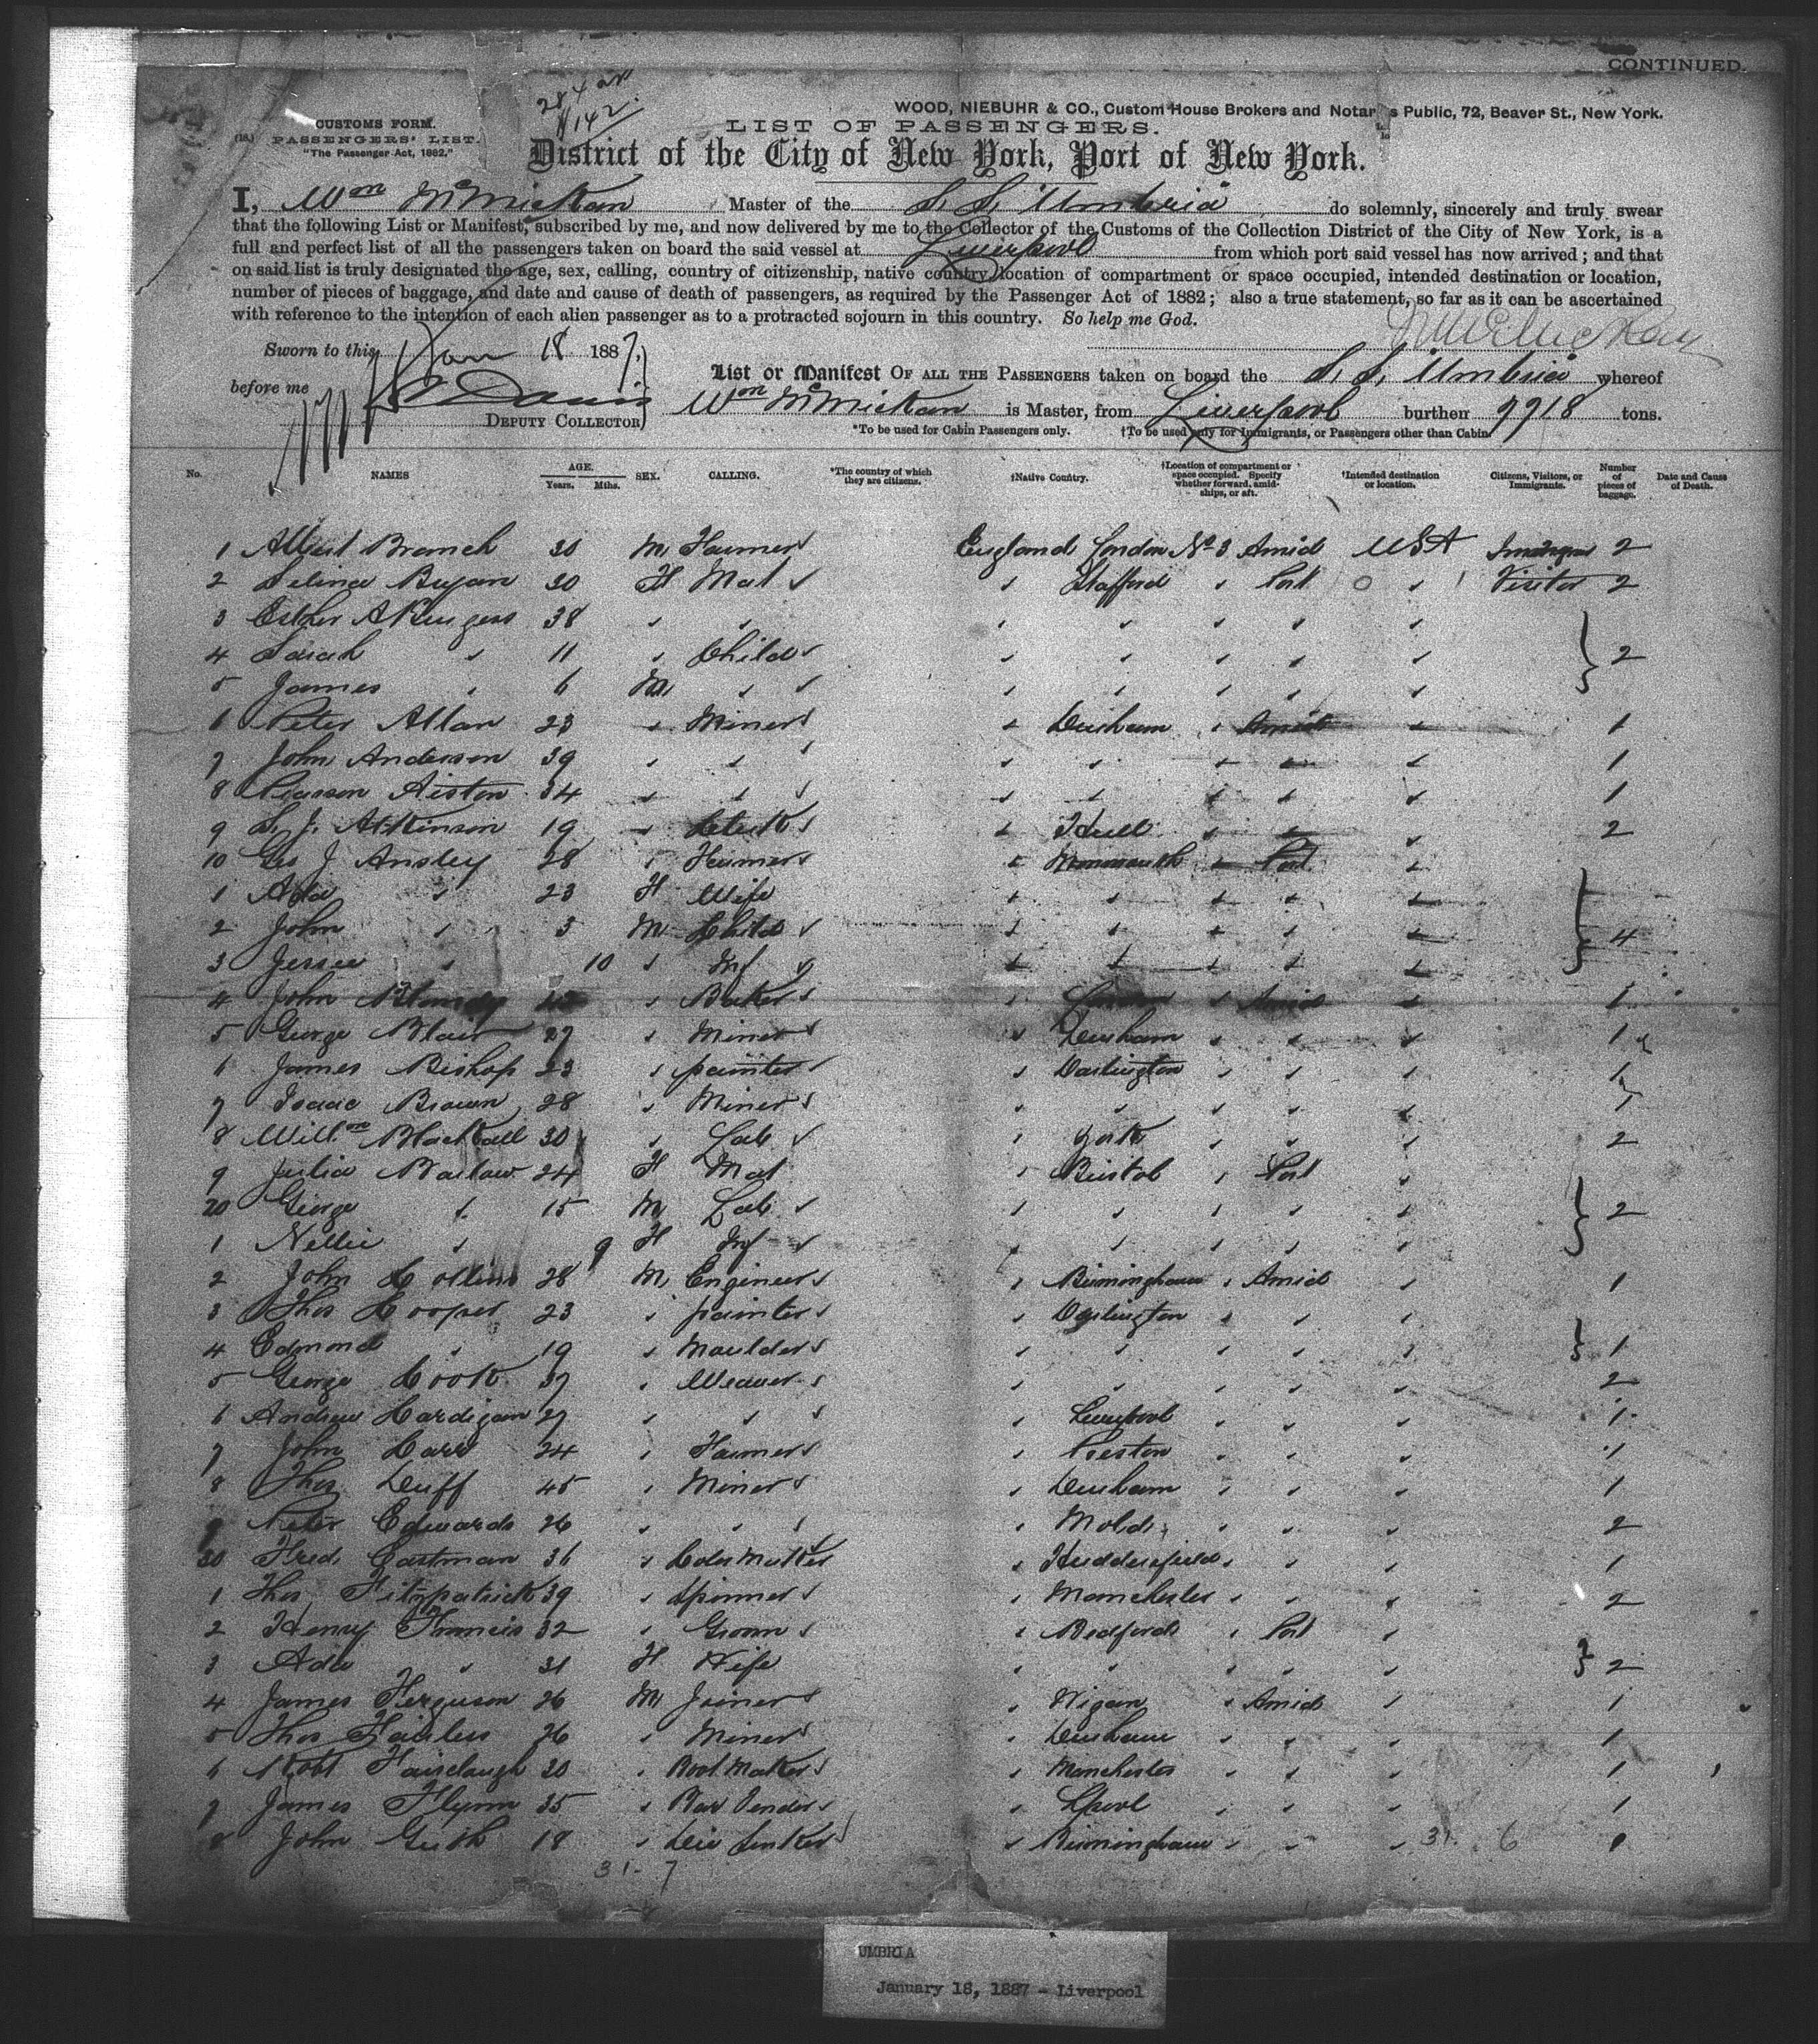 CONTINUED.
28 4 av
# 142
WOOD, NIEBUHR & CO., Custom House Brokers and Notar s Public, 72, Beaver St., New York.
CUSTOMS FORM.
(18.) PASSENGERS' LIST.
"The Passenger Act, 1882."
LIST OF PASSENGERS.
District of the City of New York, Port of New York.
I, Wm McMickan Master of the S. S. Umbria do solemnly, sincerely and truly swear
that the following List or Manifest, subscribed by me, and now delivered by me to the Collector of the Customs of the Collection District of the City of New York, is a
full and perfect list of all the passengers taken on board the said vessel at Liverpool from which port said vessel has now arrived; and that
on said list is truly designated the age, sex, calling, country of citizenship, native country, location of compartment or space occupied, intended destination or location,
number of pieces of baggage, and date and cause of death of passengers, as required by the Passenger Act of 1882; also a true statement, so far as it can be ascertained
with reference to the intention of each alien passenger as to a protracted sojourn in this country. So help me God.
WMcMickan
Sworn to this Jan 18 1887,
before me Davis
DEPUTY COLLECTOR
List or Manifest OF ALL THE PASSENGERS taken on board the S. S. Umbria whereof
Wm McMickan is Master, from Liverpool burthen 7718 tons.
*To be used for Cabin Passengers only. †To be used only for Immigrants, or Passengers other than Cabin
No. NAMES AGE. Years. Mths. SEX. CALLING. *The country of which they are citizens. †Native Country. †Location of compartment or space occupied. Specify whether forward, amidships, or aft. †Intended destination or location. Citizens, Visitors, or Immigrants. Number of pieces of baggage. Date and Cause of Death.
1 Albert Branch 30 M Farmer England London No 3 Amid USA 2
2 Selina Bryan 30 F Mat " Stafford " Port " Visitor 2
3 Esther A Burgess 38 " " " " " " "
4 Sarah " 11 " Child " " " " " 2
5 James " 6 M " " " " " "
6 Peter Allan 23 " Miner " Durham " Amid " 1
7 John Anderson 39 " " " " " " " 1
8 Pearson Aiston 34 " " " " " " " 1
9 S. J. Atkinson 19 " Clerk " Hull " " " 2
10 Geo J Ansley 28 " Farmer " Monmouth " Port "
1 Ada " 23 F Wife " " " " "
2 John " 3 M Child " " " " " 4
3 Jessie " 10 " Inf " " " " "
4 John " Baker " London " Amid " 1
5 George Blair 27 " Miner " Durham " " " 1
6 James Bishop 23 " painter " Darlington " " " 1
7 Isaac Brown 28 " Miner " " " " " 1
8 Willm Blackall 30 " Lab " York " " " 2
9 Julia Barlow 24 F Mat " Bristol " Port "
20 George " 15 M Lab " " " " " 2
1 Nellie " 9 F Inf " " " " "
2 John Collins 28 M Engineer " Birmingham " Amid " 1
3 Thos Cooper 23 " painter " Darlington " " "
4 Edmond " 19 " Moulder " " " " " 1
5 George Cook 37 " Weaver " " " " " 2
6 Andrew Cardigan 27 " " " Liverpool " " " 1
7 John Carr 24 " Farmer " Preston " " " 1
8 Thos Duff 45 " Miner " Durham " " " 1
9 Peter Edwards 26 " " " Mold " " " 2
30 Fred. Eastman 36 " " Huddersfield " " " 1
1 Thos Fitzpatrick 39 " Spinner " Manchester " " " 2
2 Henry Francis 32 " Groom " Bedford " Port "
3 Ada " 31 F Wife " " " " " 2
4 James Ferguson 26 M Joiner " Wigan " Amid " 1
5 Thos Fairless 26 " Miner " Durham " " " 1
6 Robt Fairclough 30 " Boot Maker " Manchester " " " 1
7 James Flynn 35 " Bar Tender " Lpool " " " 1
8 John 18 " Die Sinker " Birmingham " " " 31. 6 1
31- 7
UMBRIA
January 18, 1887 - Liverpool